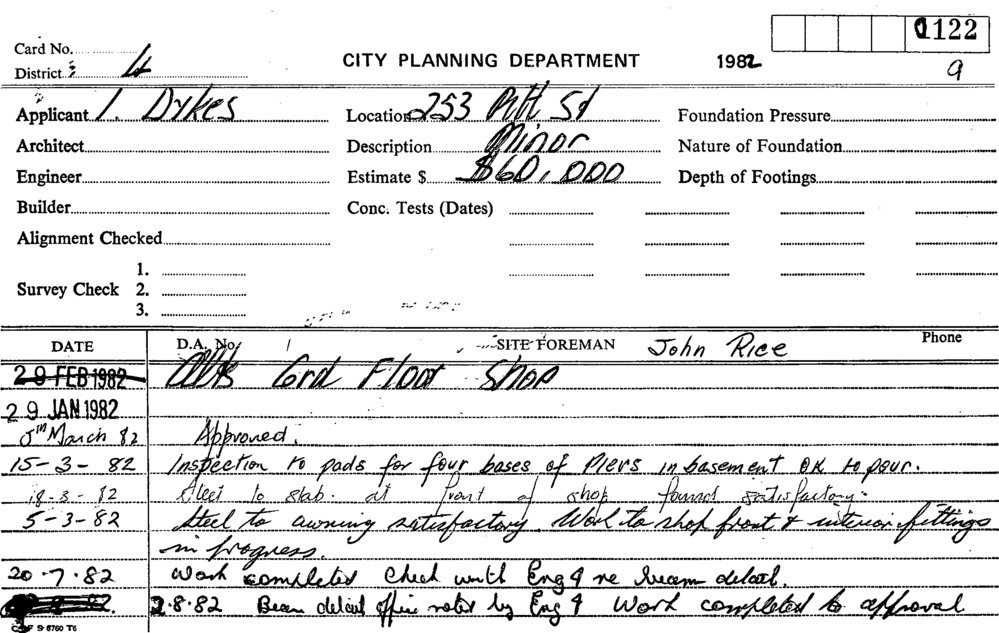 1122
Card No.
CITY PLANNING DEPARTMENT 1982
District 4 9
Applicant I. Dykes Location 253 Pitt St Foundation Pressure
Architect Description Minor Nature of Foundation
Engineer Estimate $ $60,000 Depth of Footings
Builder Conc. Tests (Dates)
Alignment Checked
1.
Survey Check 2.
3.
DATE D.A. No. SITE FOREMAN John Rice Phone
29 FEB 1982 Alts Grd Floor Shop
29 JAN 1982
5th March 82 Approved.
15-3-82 Inspection to pads for four bases of Piers in basement OK to pour.
18-3-82 Steel to slab at front of shop found satisfactory.
5-3-82 Steel to awning satisfactory. Work to shop front & interior fittings
in progress.
20.7.82 Work completed Check with Eng 9 re beam detail.
2.8.82 Beam detail noted by Eng 9 Work completed to approval
6760 T6